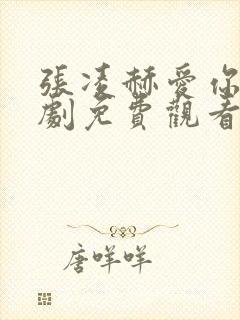 張凌赫愛你
劇免費觀看
唐咩咩